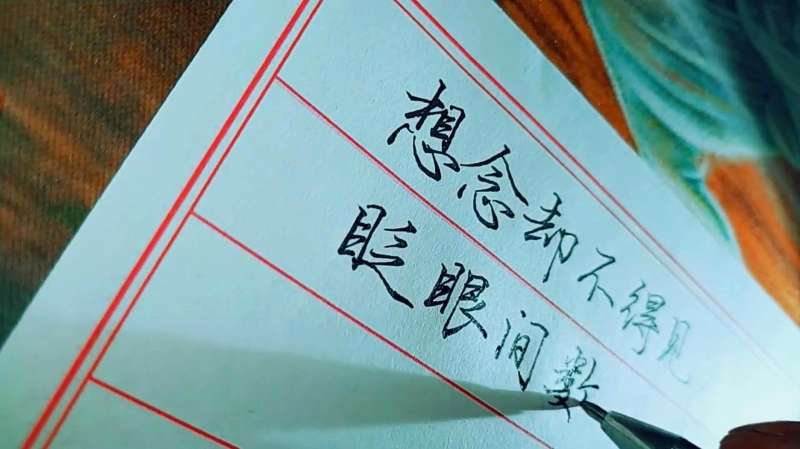 想念却不得见
眨眼间数